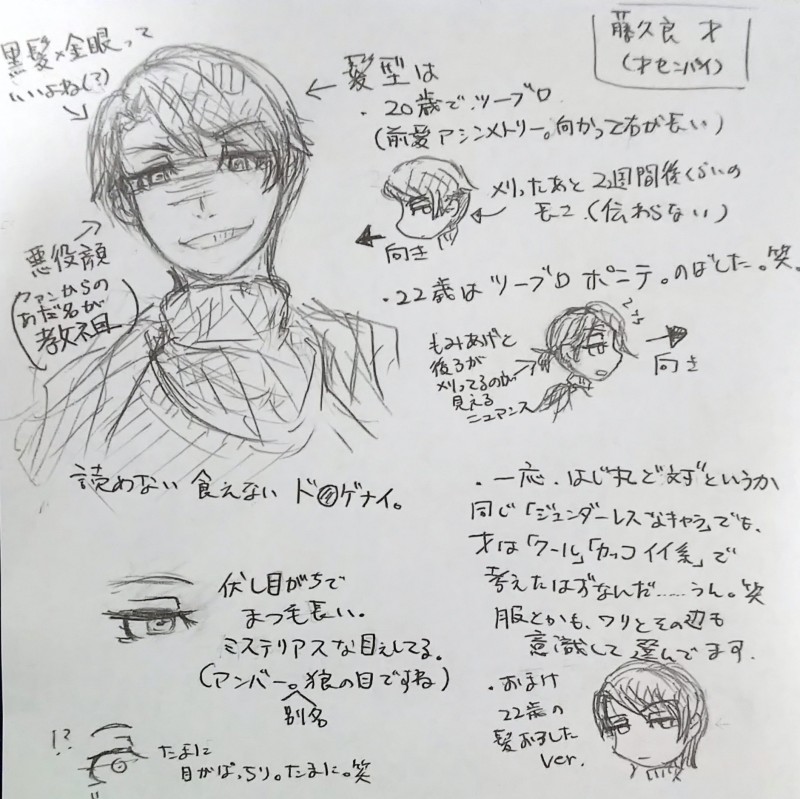 藤久良 才
(才センパイ)
黒髪×金眼って
いいよね(?)
髪型は
・20歳で、ツーブロ
(前髪アシンメトリー。向かって右が長い)
刈ったあと2週間後くらいの
モコ。(伝わらない)
向き
悪役顔
(ファンからの
あだ名が
教祖)
・22歳はツーブロ ポニテ。のばした。笑。
もみあげと
後ろが
刈ってるのが
見える
ニュアンス
向き
読めない 食えない
・一応、はじ丸と"対"というか
同じ「ジェンダーレスなキャラ」でも、
才は「クール」「カッコイイ系」で
考えたはずなんだ……うん。笑
服とかも、ワリとその辺も
意識して選んでます。
伏し目がちで
まつ毛長い。
ミステリアスな目えしてる。
(アンバー。狼の目ですね)
別名
・おまけ
22歳の
髪おろした
ver.
!?
たまに
目がぱっちり。たまに。笑